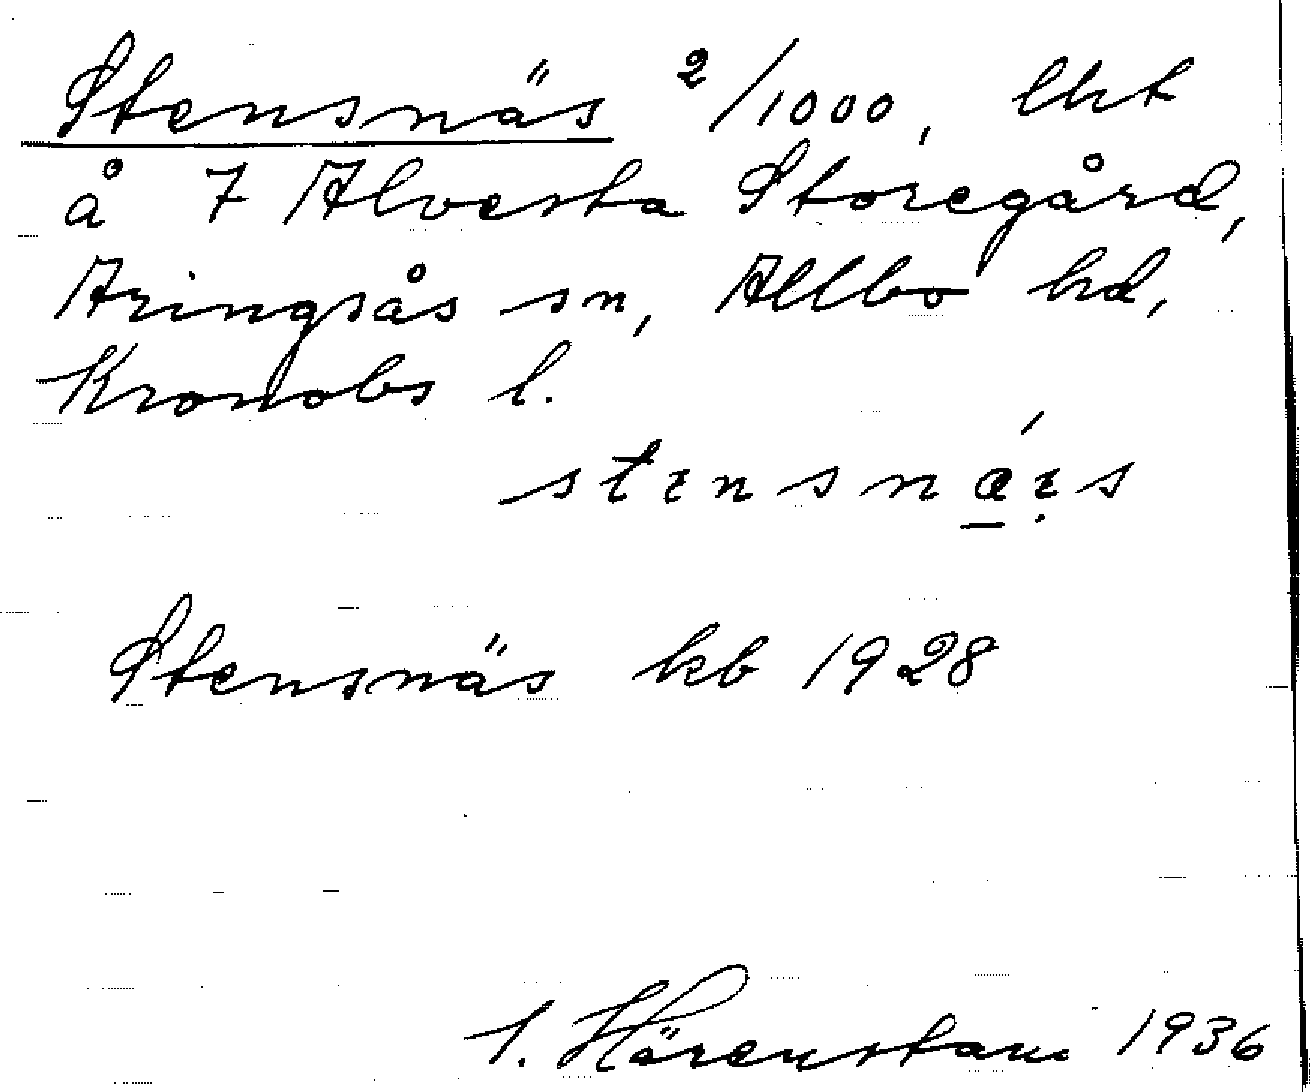 Stensnäs 2/1000, lht
å 7 Alvesta Storegård,
Aringsås sn, Allbo hd,
Kronobs l.
stensnáes
Stensnäs kb 1928
S. Härenstam 1936